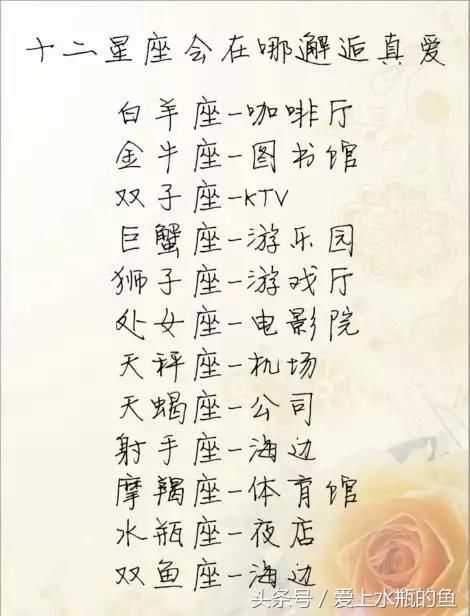 十二星座会在哪邂逅真爱
白羊座-咖啡厅
金牛座-图书馆
双子座-KTV
巨蟹座-游乐园
狮子座-游戏厅
处女座-电影院
天秤座-机场
天蝎座-公司
射手座-海边
摩羯座-体育馆
水瓶座-夜店
双鱼座-海边
头条号/爱上水瓶的鱼